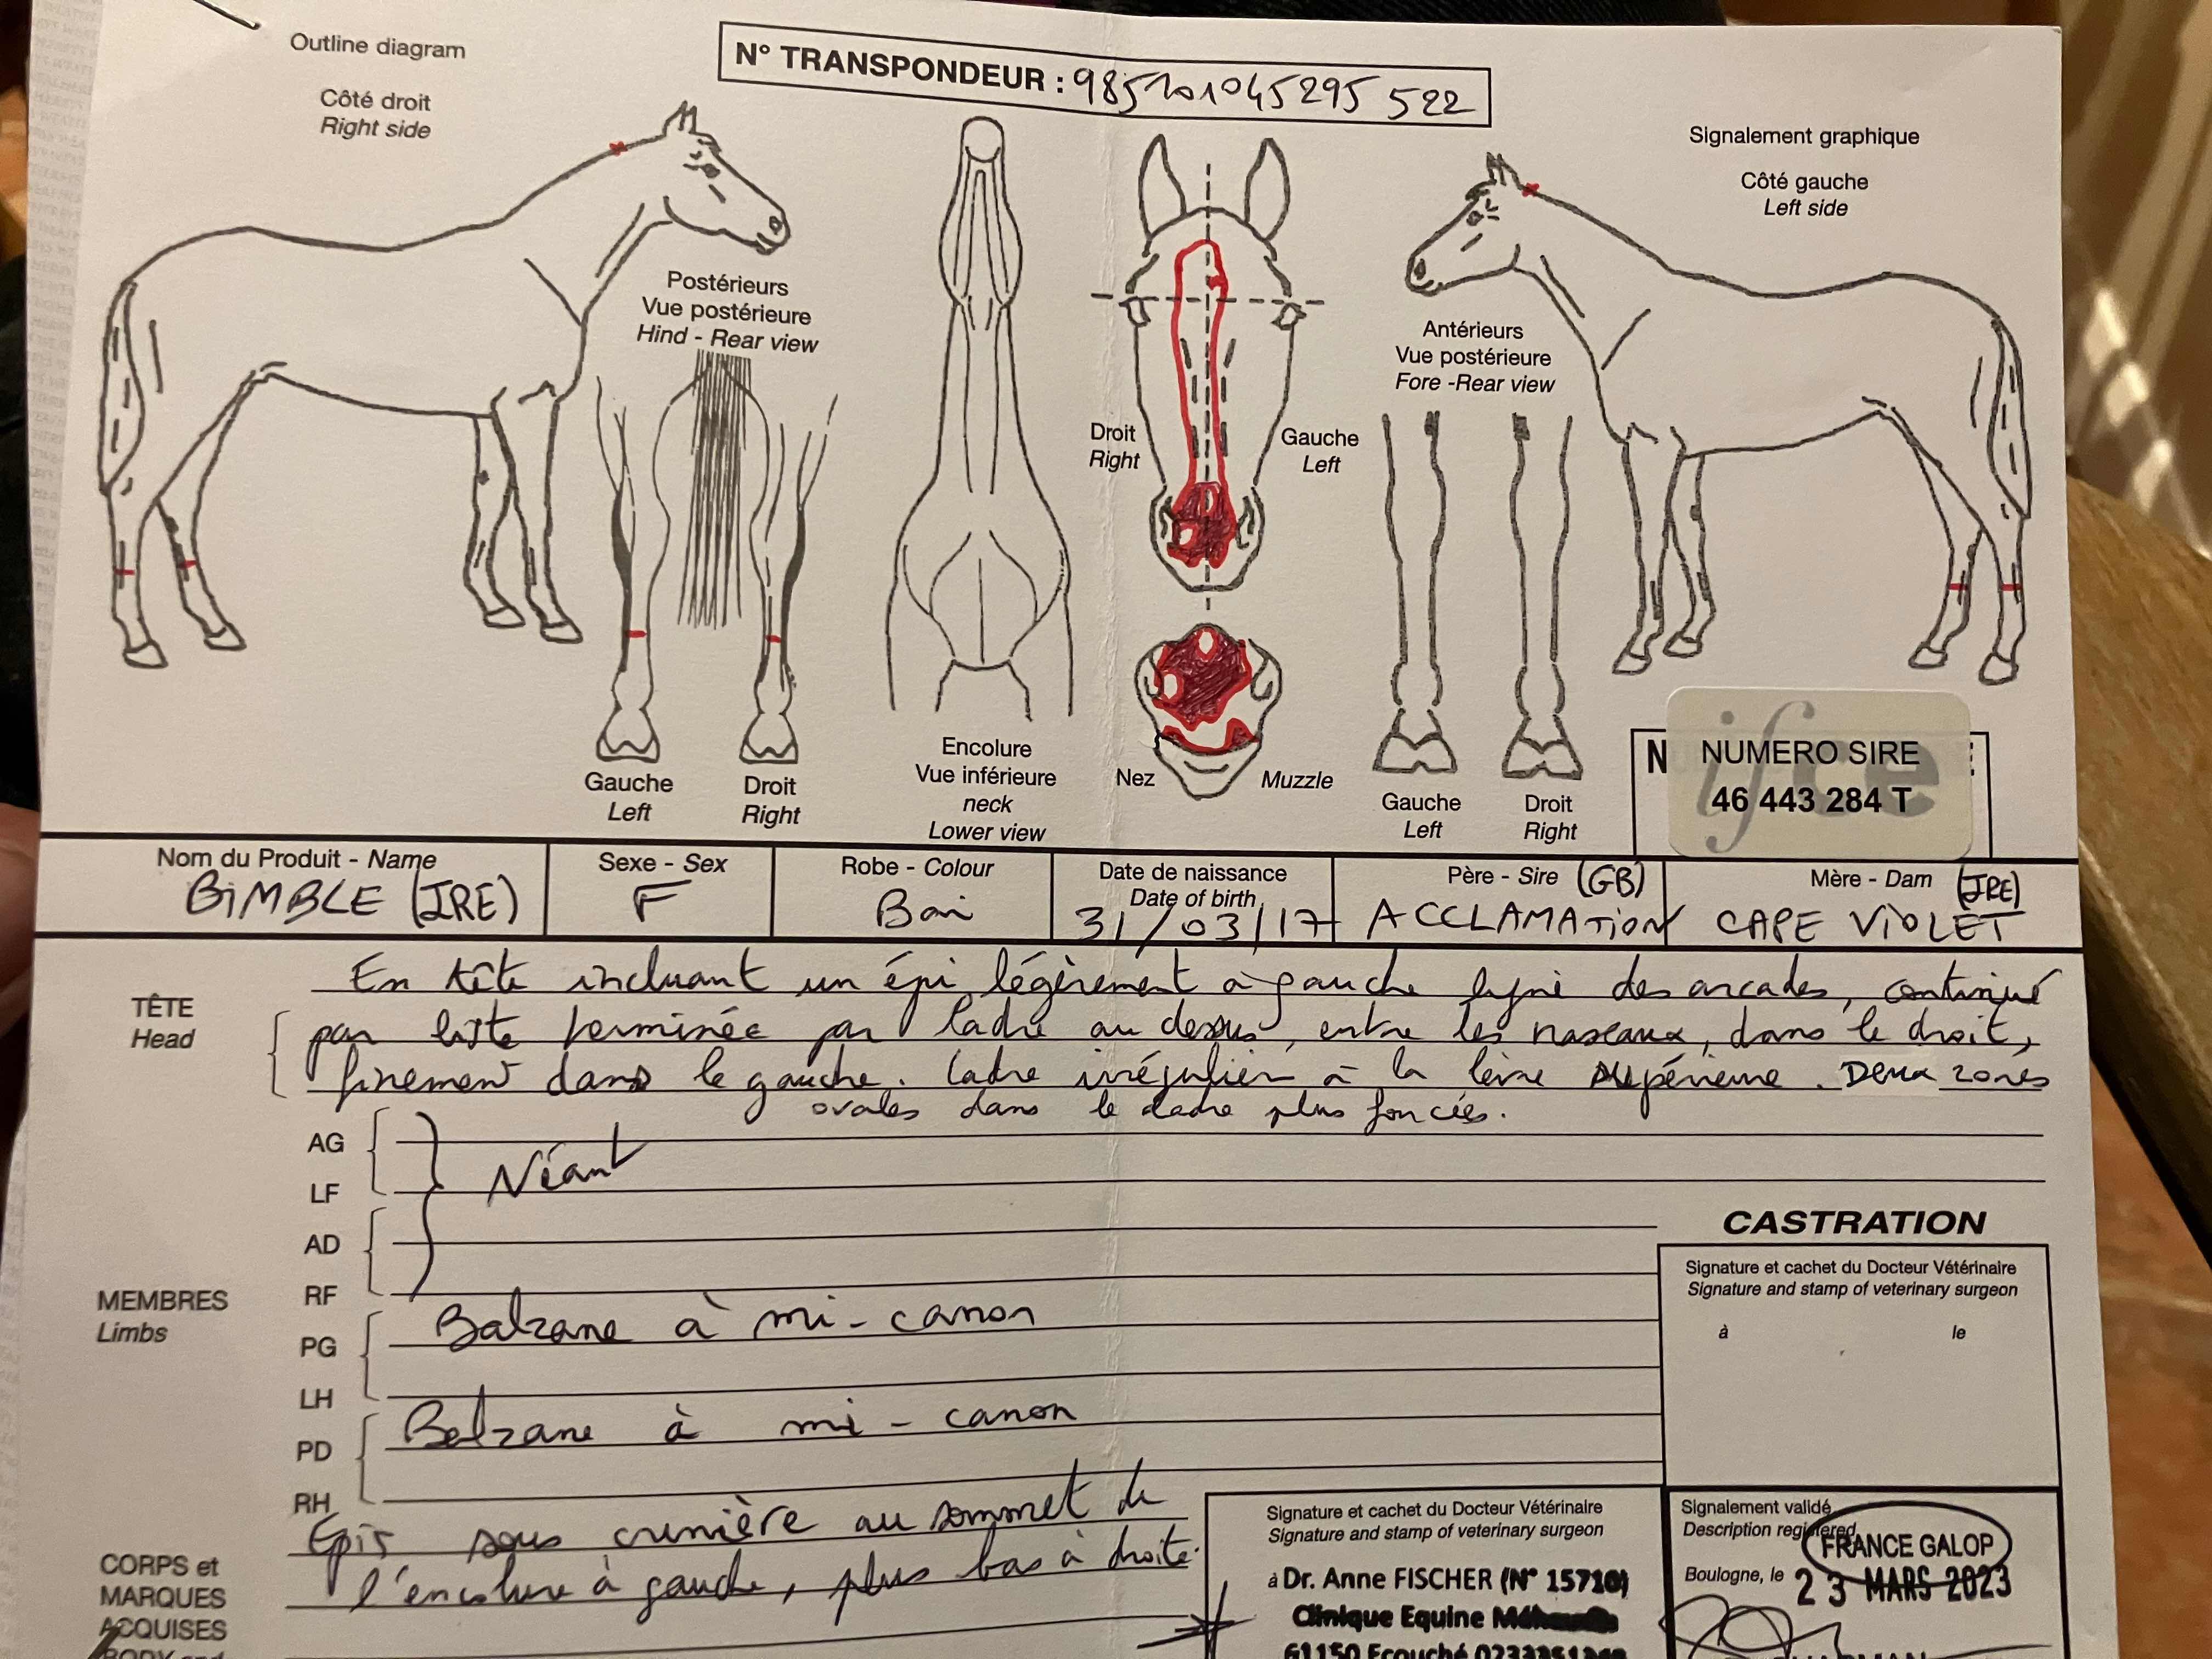 Outline diagram
Côté droit
Right side
N° TRANSPONDEUR : 985101045295 522
Signalement graphique
Côté gauche
Left side
Postérieurs
Vue postérieure
Hind - Rear view
Antérieurs
Vue postérieure
Fore -Rear view
Droit
Right
Gauche
Left
Gauche
Left
Droit
Right
Encolure
Vue inférieure
neck
Lower view
Nez
Muzzle
Gauche
Left
Droit
Right
N
ifce
NUMERO SIRE
46 443 284 T
Nom du Produit - Name
BIMBLE (IRE)
Sexe - Sex
F
Robe - Colour
Bai
Date de naissance
Date of birth
31/03/17
Père - Sire (GB)
ACCLAMATION
Mère - Dam (IRE)
CAPE VIOLET
TÊTE
Head
En tête incluant un épi légèrement à gauche ligne des arcades, continué
par liste terminée par ladre au dessus, entre les naseaux, dans le droit,
finement dans le gauche. Ladre irrégulier à la lèvre supérieure. Deux zones
ovales dans le ladre plus foncées.
MEMBRES
Limbs
AG
LF
AD
RF
Néant
PG
LH
Balzane à mi-canon
PD
RH
Balzane à mi-canon
CORPS et
MARQUES
ACQUISES
BODY and
Epis sous crinière au sommet de
l'encolure à gauche, plus bas à droite.
CASTRATION
Signature et cachet du Docteur Vétérinaire
Signature and stamp of veterinary surgeon
à le
Signature et cachet du Docteur Vétérinaire
Signature and stamp of veterinary surgeon
à Dr. Anne FISCHER (N° 15710)
Clinique Equine
61150 Ecouché
Signalement validé
Description registered
FRANCE GALOP
Boulogne, le 23 MARS 2023